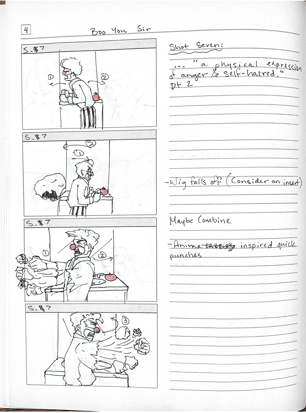 4
Boo You Sir
S.#7
Shot Seven:
... "a physical expression
of anger & self-hatred."
pt 2
① ②
S.#7
-Wig falls off (Consider an insert)
S.#7
Maybe Combine
-Anime inspired quick
punches
① ②
S.#7
①
②